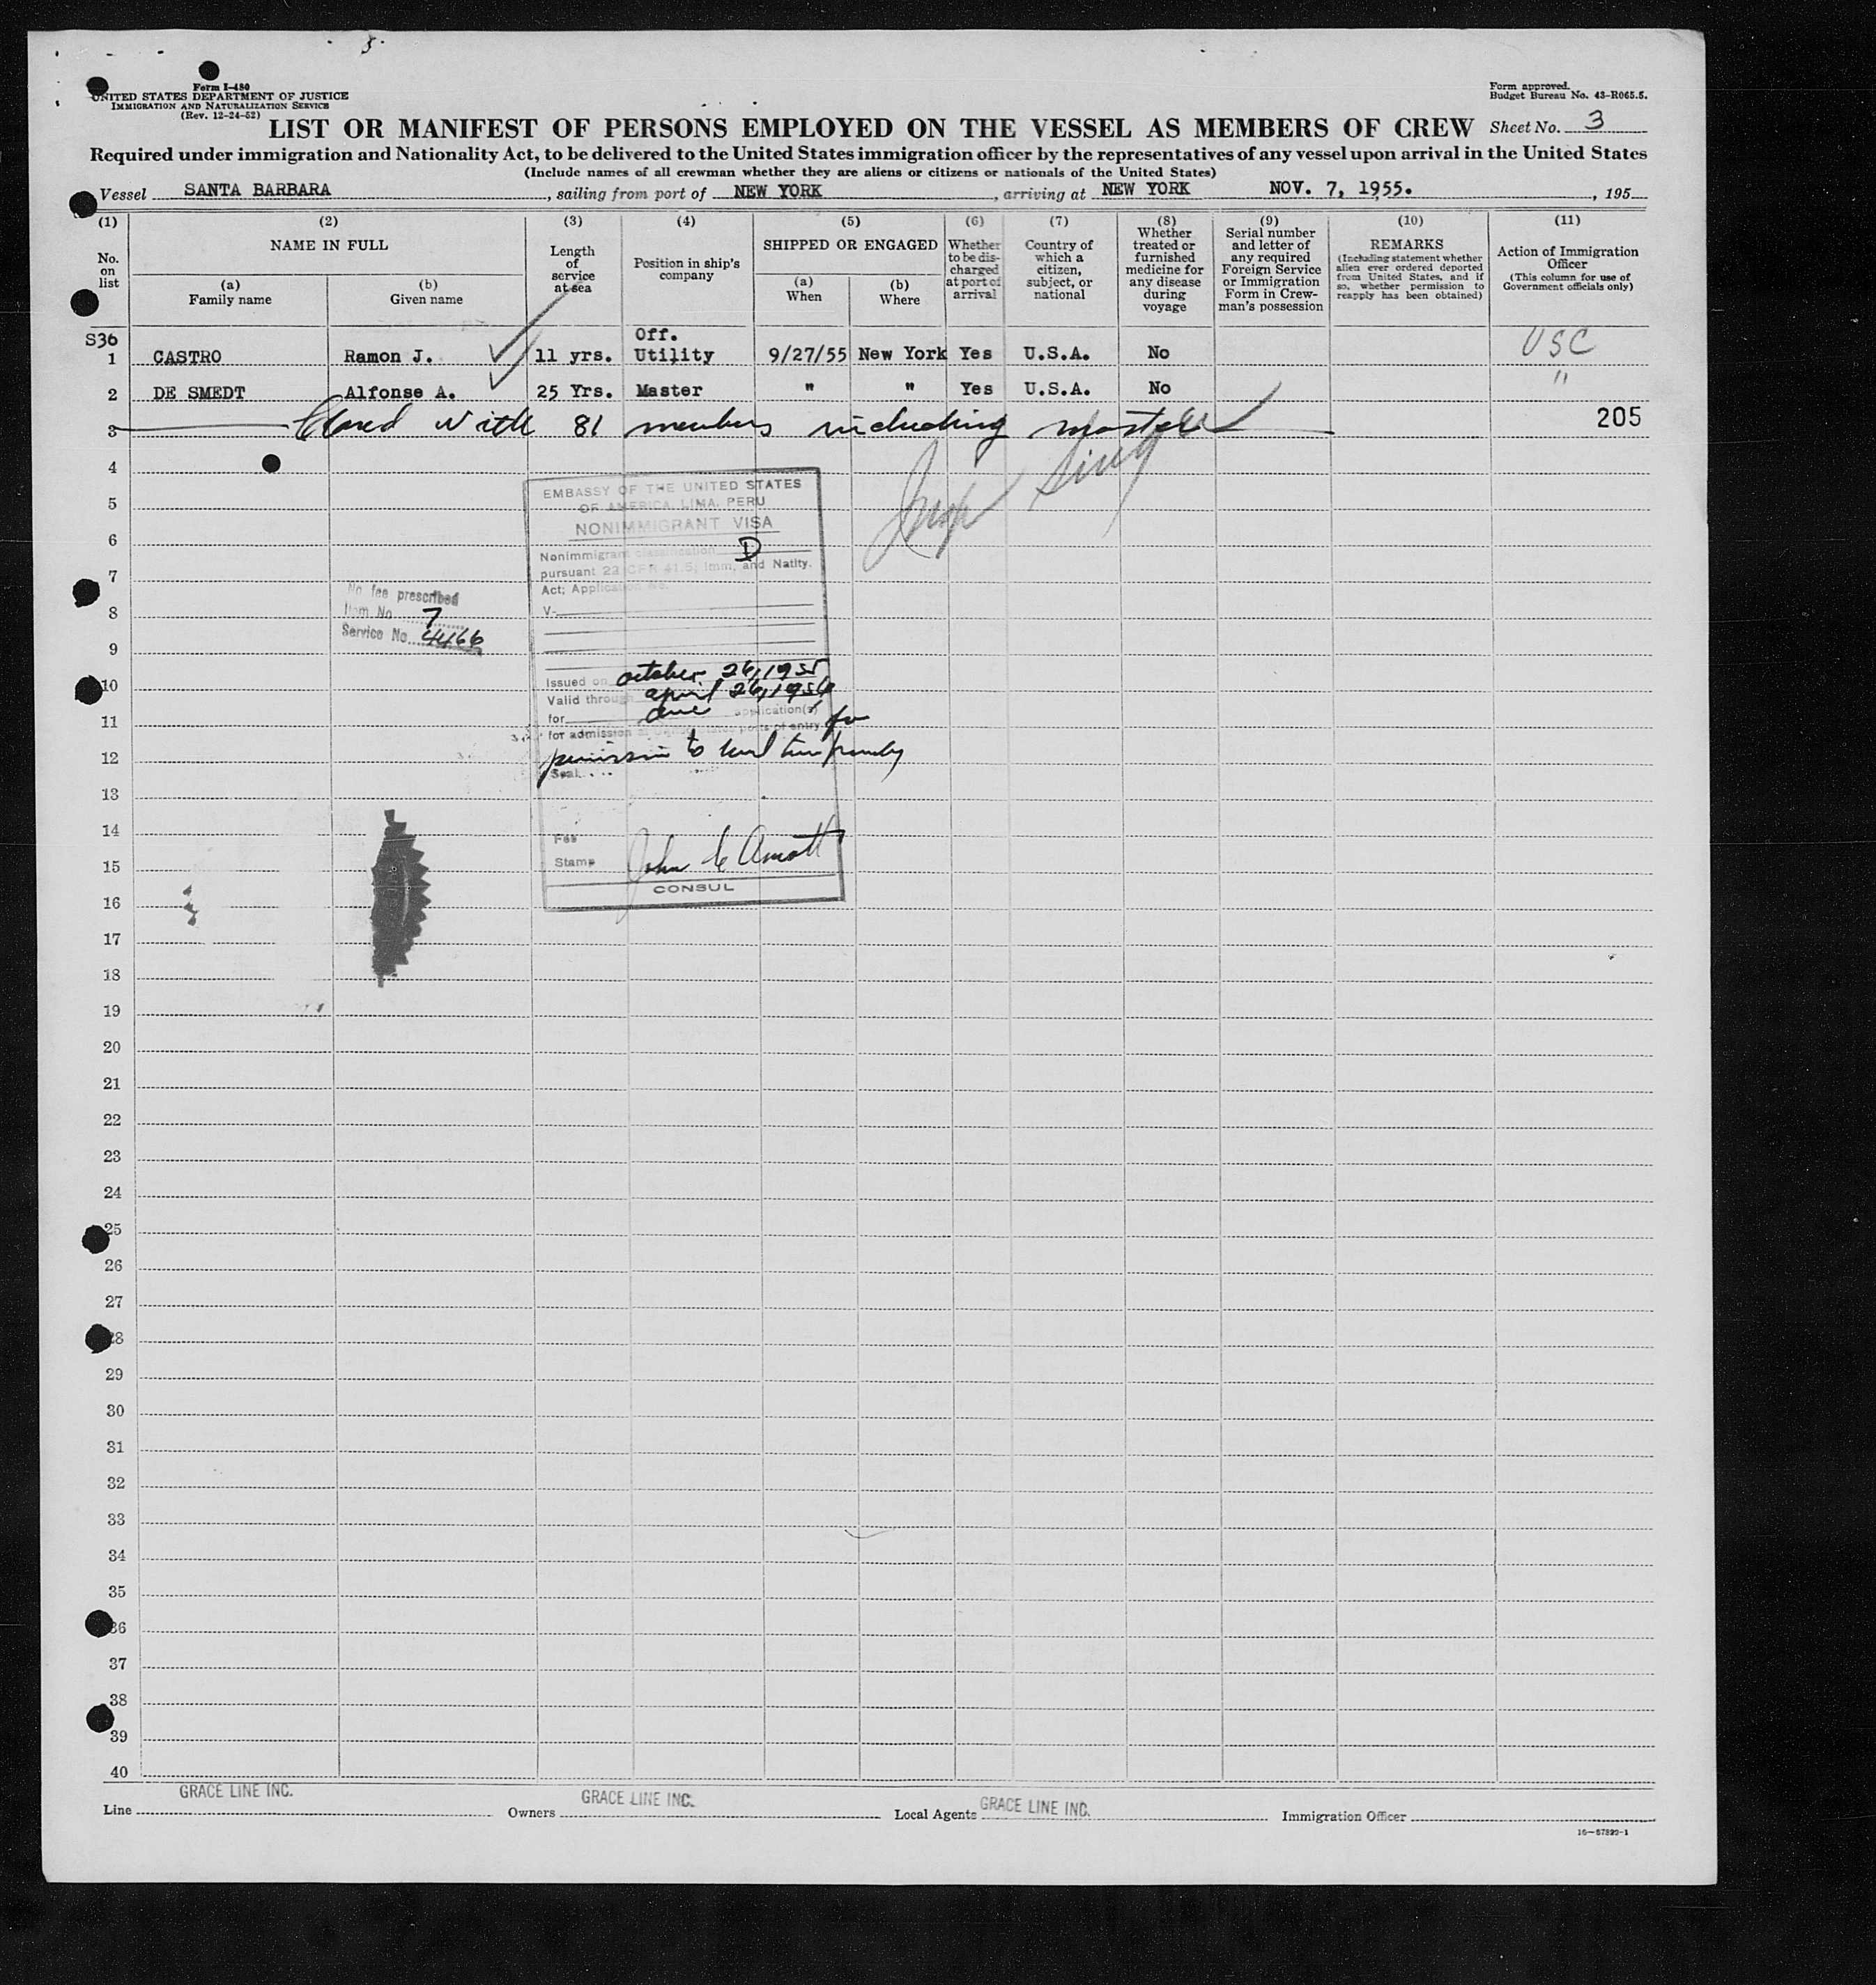 Form I-480
UNITED STATES DEPARTMENT OF JUSTICE
IMMIGRATION AND NATURALIZATION SERVICE
(Rev. 12-24-52)
Form approved.
Budget Bureau No. 43-R065.5.
LIST OR MANIFEST OF PERSONS EMPLOYED ON THE VESSEL AS MEMBERS OF CREW Sheet No. 3
Required under immigration and Nationality Act, to be delivered to the United States immigration officer by the representatives of any vessel upon arrival in the United States
(Include names of all crewman whether they are aliens or citizens or nationals of the United States)
Vessel SANTA BARBARA, sailing from port of NEW YORK, arriving at NEW YORK NOV. 7, 1955., 195
(1) (2) (3) (4) (5) (6) (7) (8) (9) (10) (11)
No. on list
NAME IN FULL
(a) Family name
(b) Given name
Length of service at sea
Position in ship's company
SHIPPED OR ENGAGED
(a) When
(b) Where
Whether to be discharged at port of arrival
Country of which a citizen, subject, or national
Whether treated or furnished medicine for any disease during voyage
Serial number and letter of any required Foreign Service or Immigration Form in Crewman's possession
REMARKS
(Including statement whether alien ever ordered deported from United States, and if so, whether permission to reapply has been obtained)
Action of Immigration Officer
(This column for use of Government officials only)
S36
1 CASTRO Ramon J. 11 yrs. Off. Utility 9/27/55 New York Yes U.S.A. No USC
2 DE SMEDT Alfonse A. 25 Yrs. Master " " Yes U.S.A. No "
3 Closed with 81 members including master 205
4
5
6
7
8
9
10
11
12
13
14
15
16
17
18
19
20
21
22
23
24
25
26
27
28
29
30
31
32
33
34
35
36
37
38
39
40
EMBASSY OF THE UNITED STATES
OF AMERICA, LIMA, PERU
NONIMMIGRANT VISA
Nonimmigrant classification D
pursuant 22 CFR 41.5; Imm. and Natlty.
Act; Application No.
V-
Issued on October 26, 1955
Valid through April 26, 1956
for one application(s)
for admission at United States ports of entry for
permission to land temporarily
Seal
Fee
Stamp
CONSUL
No fee prescribed
Item No. 7
Service No. 4466
Line GRACE LINE INC. Owners GRACE LINE INC. Local Agents GRACE LINE INC. Immigration Officer
16—67899-1